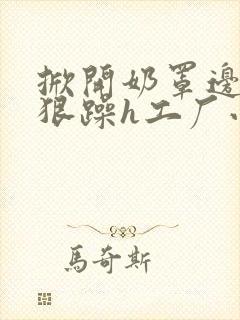 掀開奶罩邊
狠躁h工厂
馬奇斯